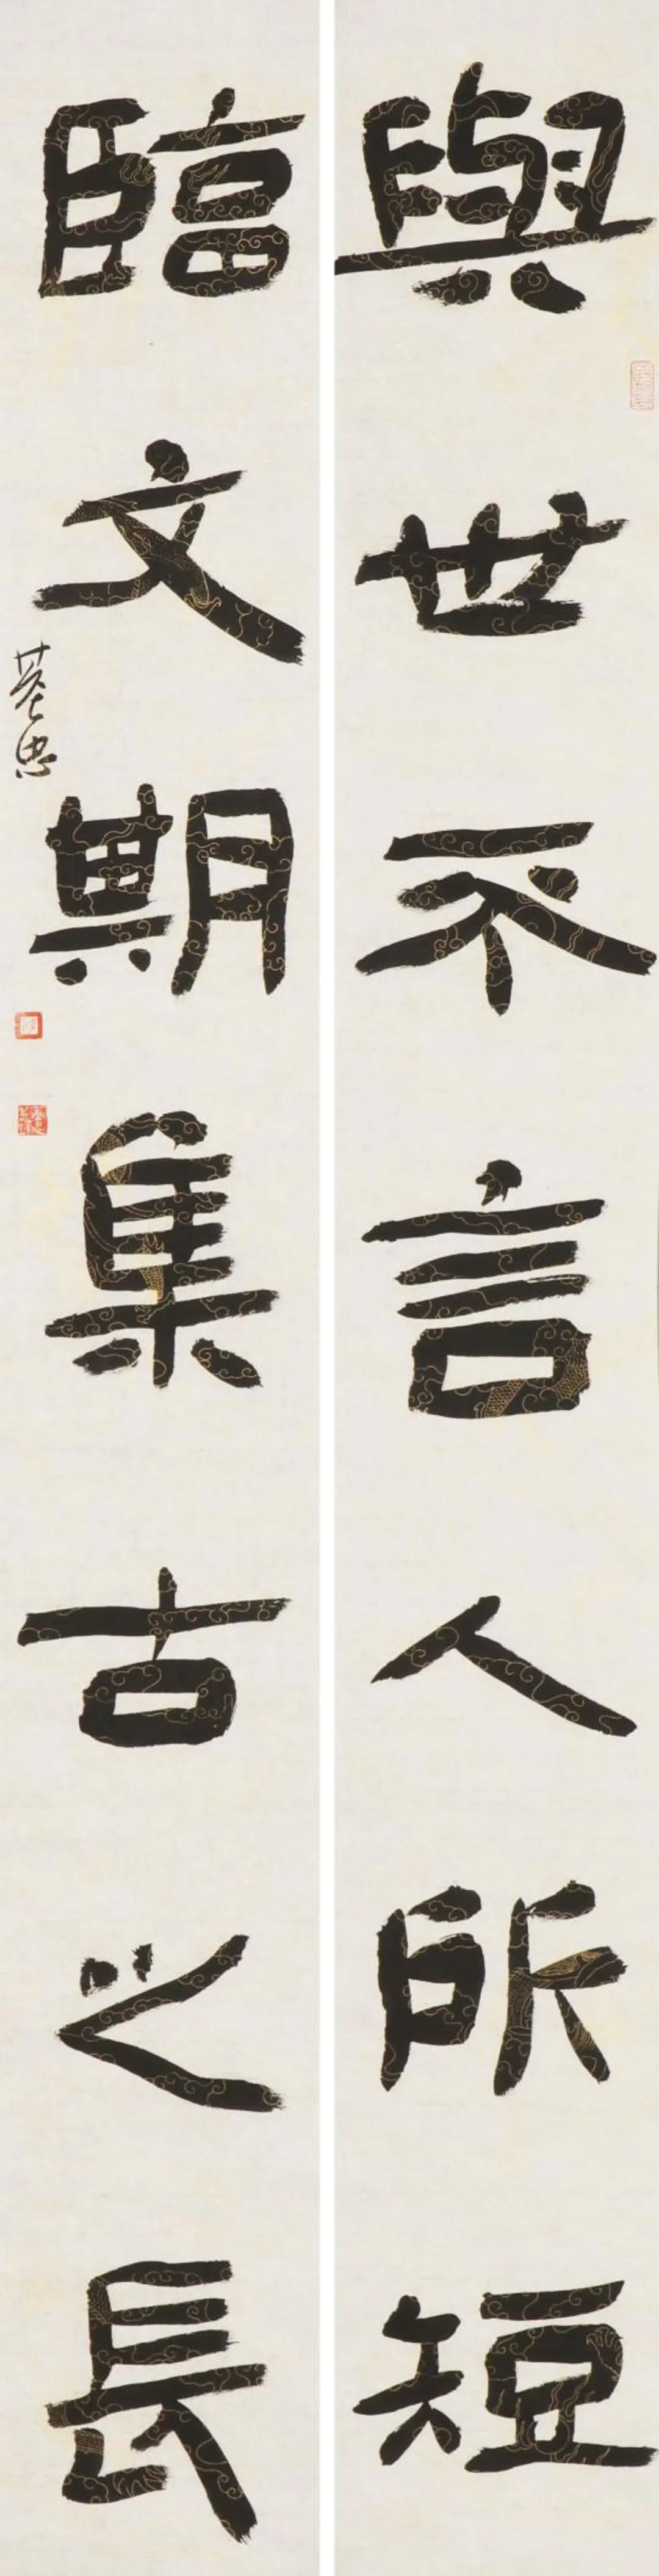 與世不言人所短
臨文期集古之長